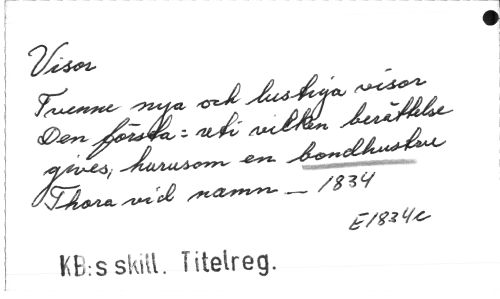 Visor
Tvenne nya och lustiga visor
Den första = uti vilken berättelse
gives, hurusom en bondhustru
Thora vid namn — 1834
E1834c
KB:s skill. Titelreg.